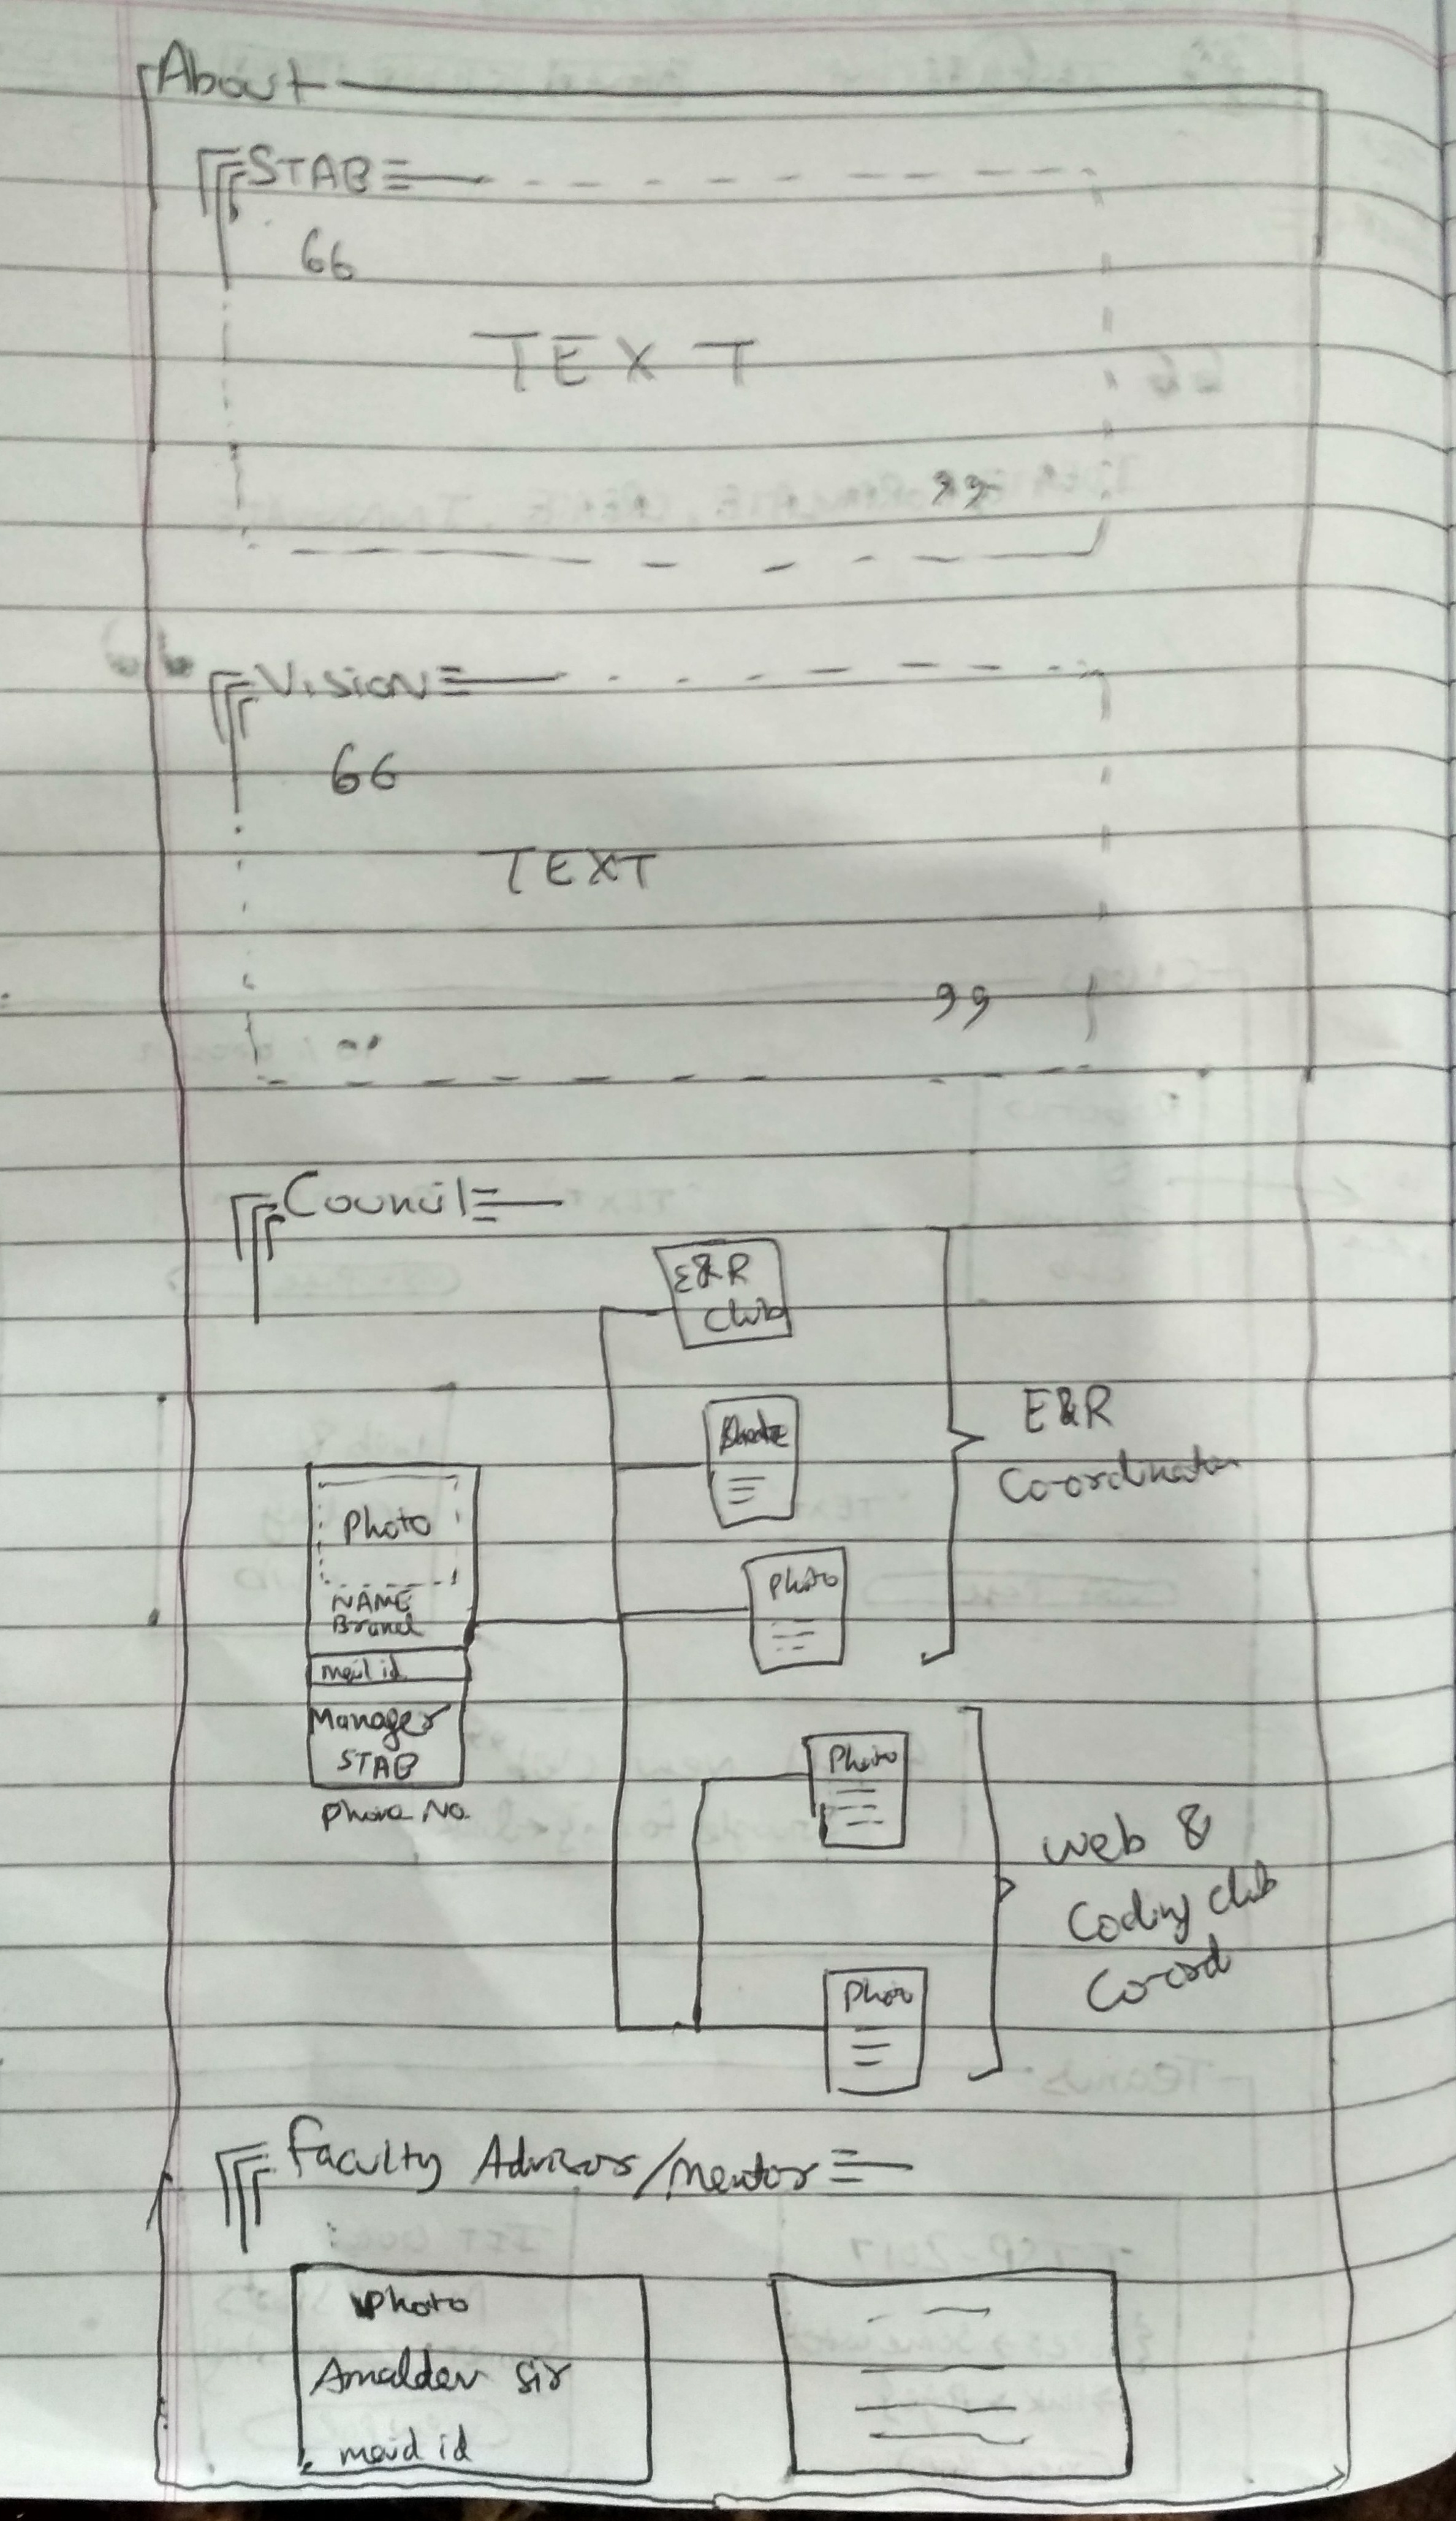 About
STAB
66
TEXT
99
Vision
66
TEXT
99
Council
E&R
Club
E&R
Co-ordinator
Photo
NAME
mail id
Manager
STAB
Phone No.
Photo
Photo
Web &
Coding club
Co-ord
Photo
Faculty Advisor/Mentor
Photo
Amaldev sir
mail id